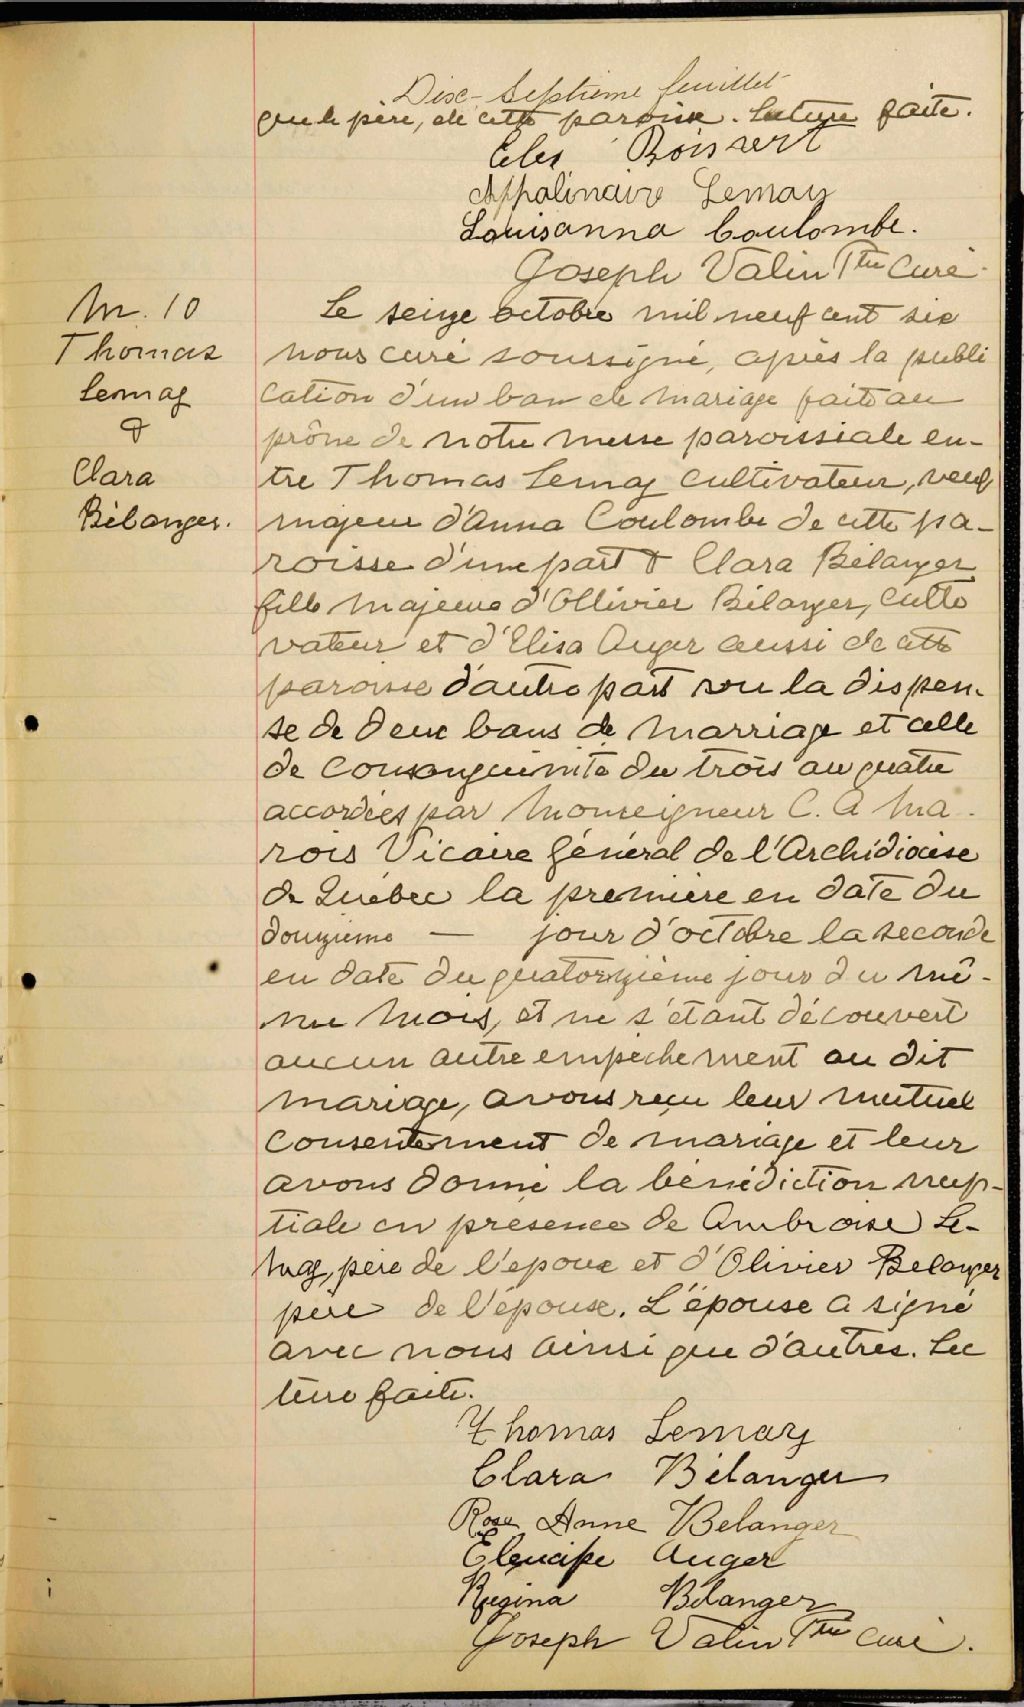 Dix-Septième feuillet
que le père, de cette paroisse. Lecture faite.
Boisvert
Appolinaire Lemay
Louisanna Coulombe.
Joseph Valin Ptre Curé.
M. 10
Thomas
Lemay
&
Clara
Bélanger.
Le seize octobre mil neuf cent six
nous curé soussigné, après la publi
cation d'un ban de mariage faite au
prône de notre messe paroissiale en-
tre Thomas Lemay cultivateur, veuf
majeur d'Anna Coulombe de cette pa-
roisse d'une part & Clara Bélanger
fille majeure d'Ollivier Bélanger, culti
vateur et d'Elisa Auger aussi de cette
paroisse d'autre part vu la dispen-
se de deux bans de marriage et celle
de consanguinité du trois au quatre
accordées par Monseigneur C. A Ma-
rois Vicaire Général de l'Archidiocèse
de Québec la première en date du
douzième — jour d'octobre la seconde
en date du quatorzième jour du mê-
me mois, et ne s'étant découvert
aucun autre empêchement au dit
mariage, avons reçu leur mutuel
consentement de mariage et leur
avons donné la bénédiction nup-
tiale en présence de Ambroise Le-
may, père de l'époux et d'Olivier Belanger
père de l'épouse. L'épouse a signé
avec nous ainsi que d'autres. Lec
ture faite.
Thomas Lemay
Clara Bélanger
Rose Anne Belanger
Eleucipe Auger
Régina Bélanger
Joseph Valin Ptre curé.